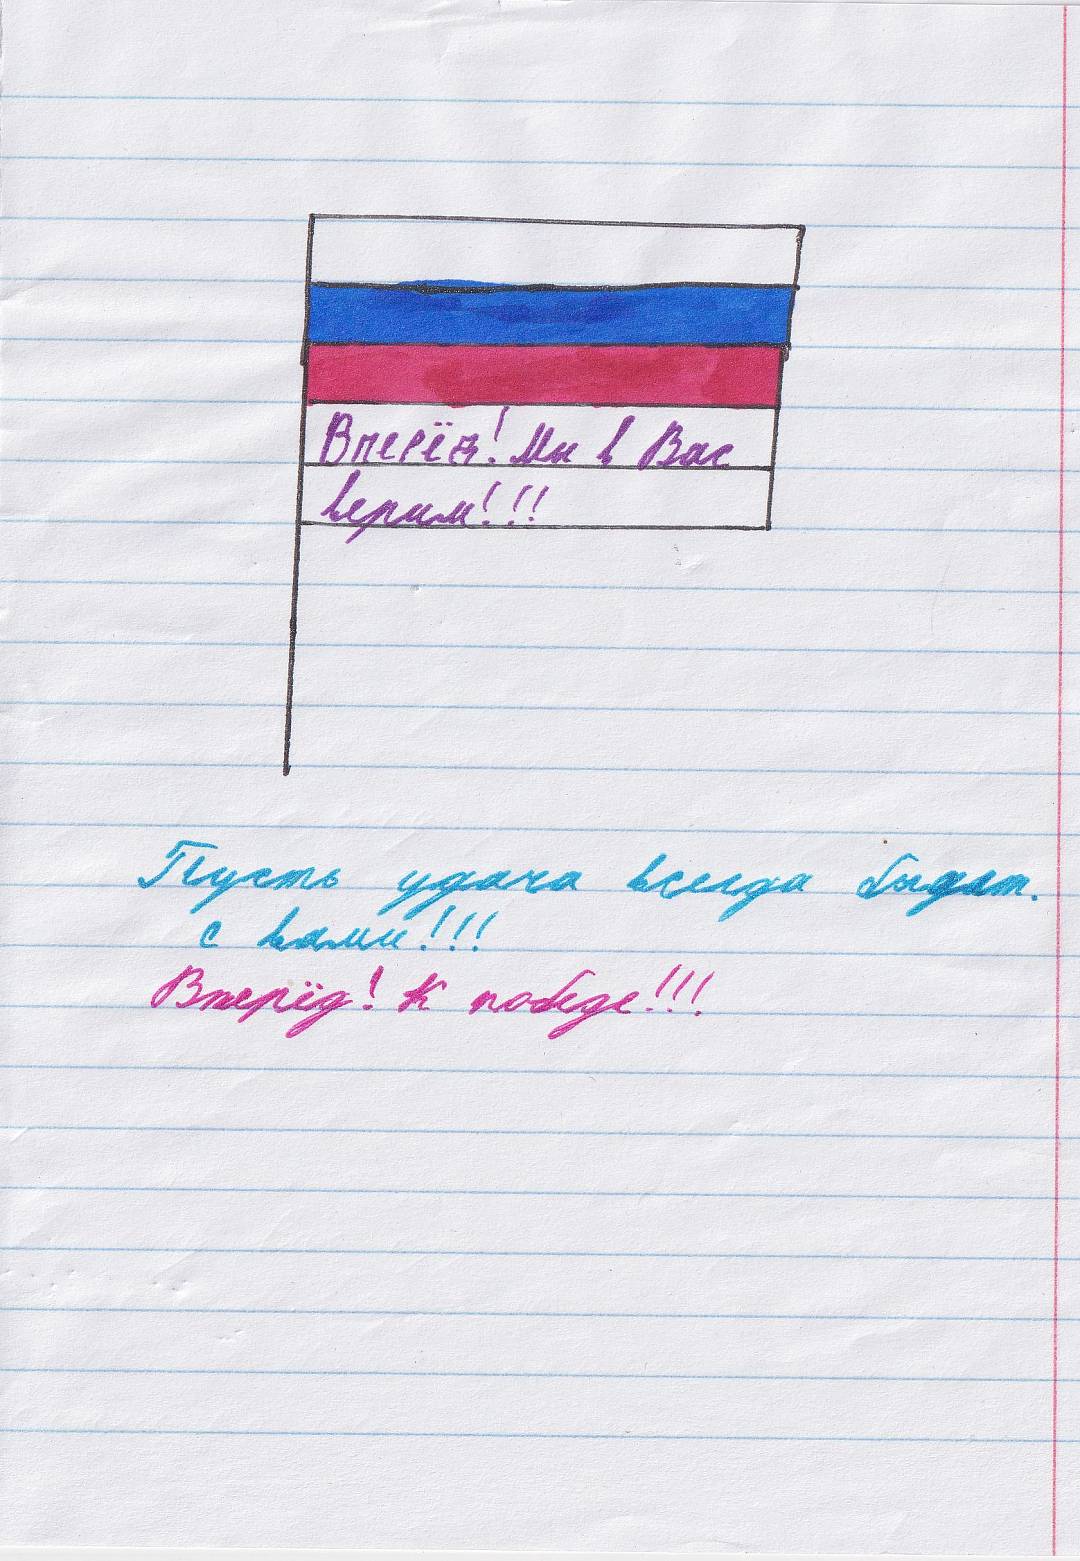 Вперёд! Мы в Вас
верим!!!
Пусть удача всегда быдет.
с вами!!!
Вперёд! К победе!!!